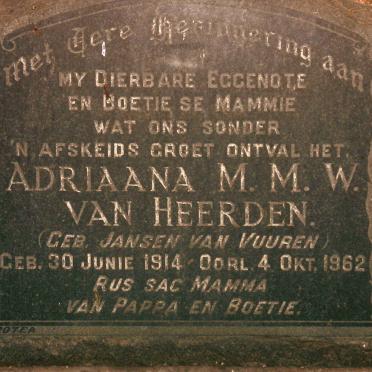 Met Eere Herinnering aan
MY DIERBARE EGGENOTE
EN BOETIE SE MAMMIE
WAT ONS SONDER
'N AFSKEIDS GROET ONTVAL HET.
ADRIAANA M. M. W.
VAN HEERDEN.
(GEB. JANSEN VAN VUUREN)
GEB. 30 JUNIE 1914 OORL. 4 OKT. 1962
RUS SAC MAMMA
VAN PAPPA EN BOETIE.